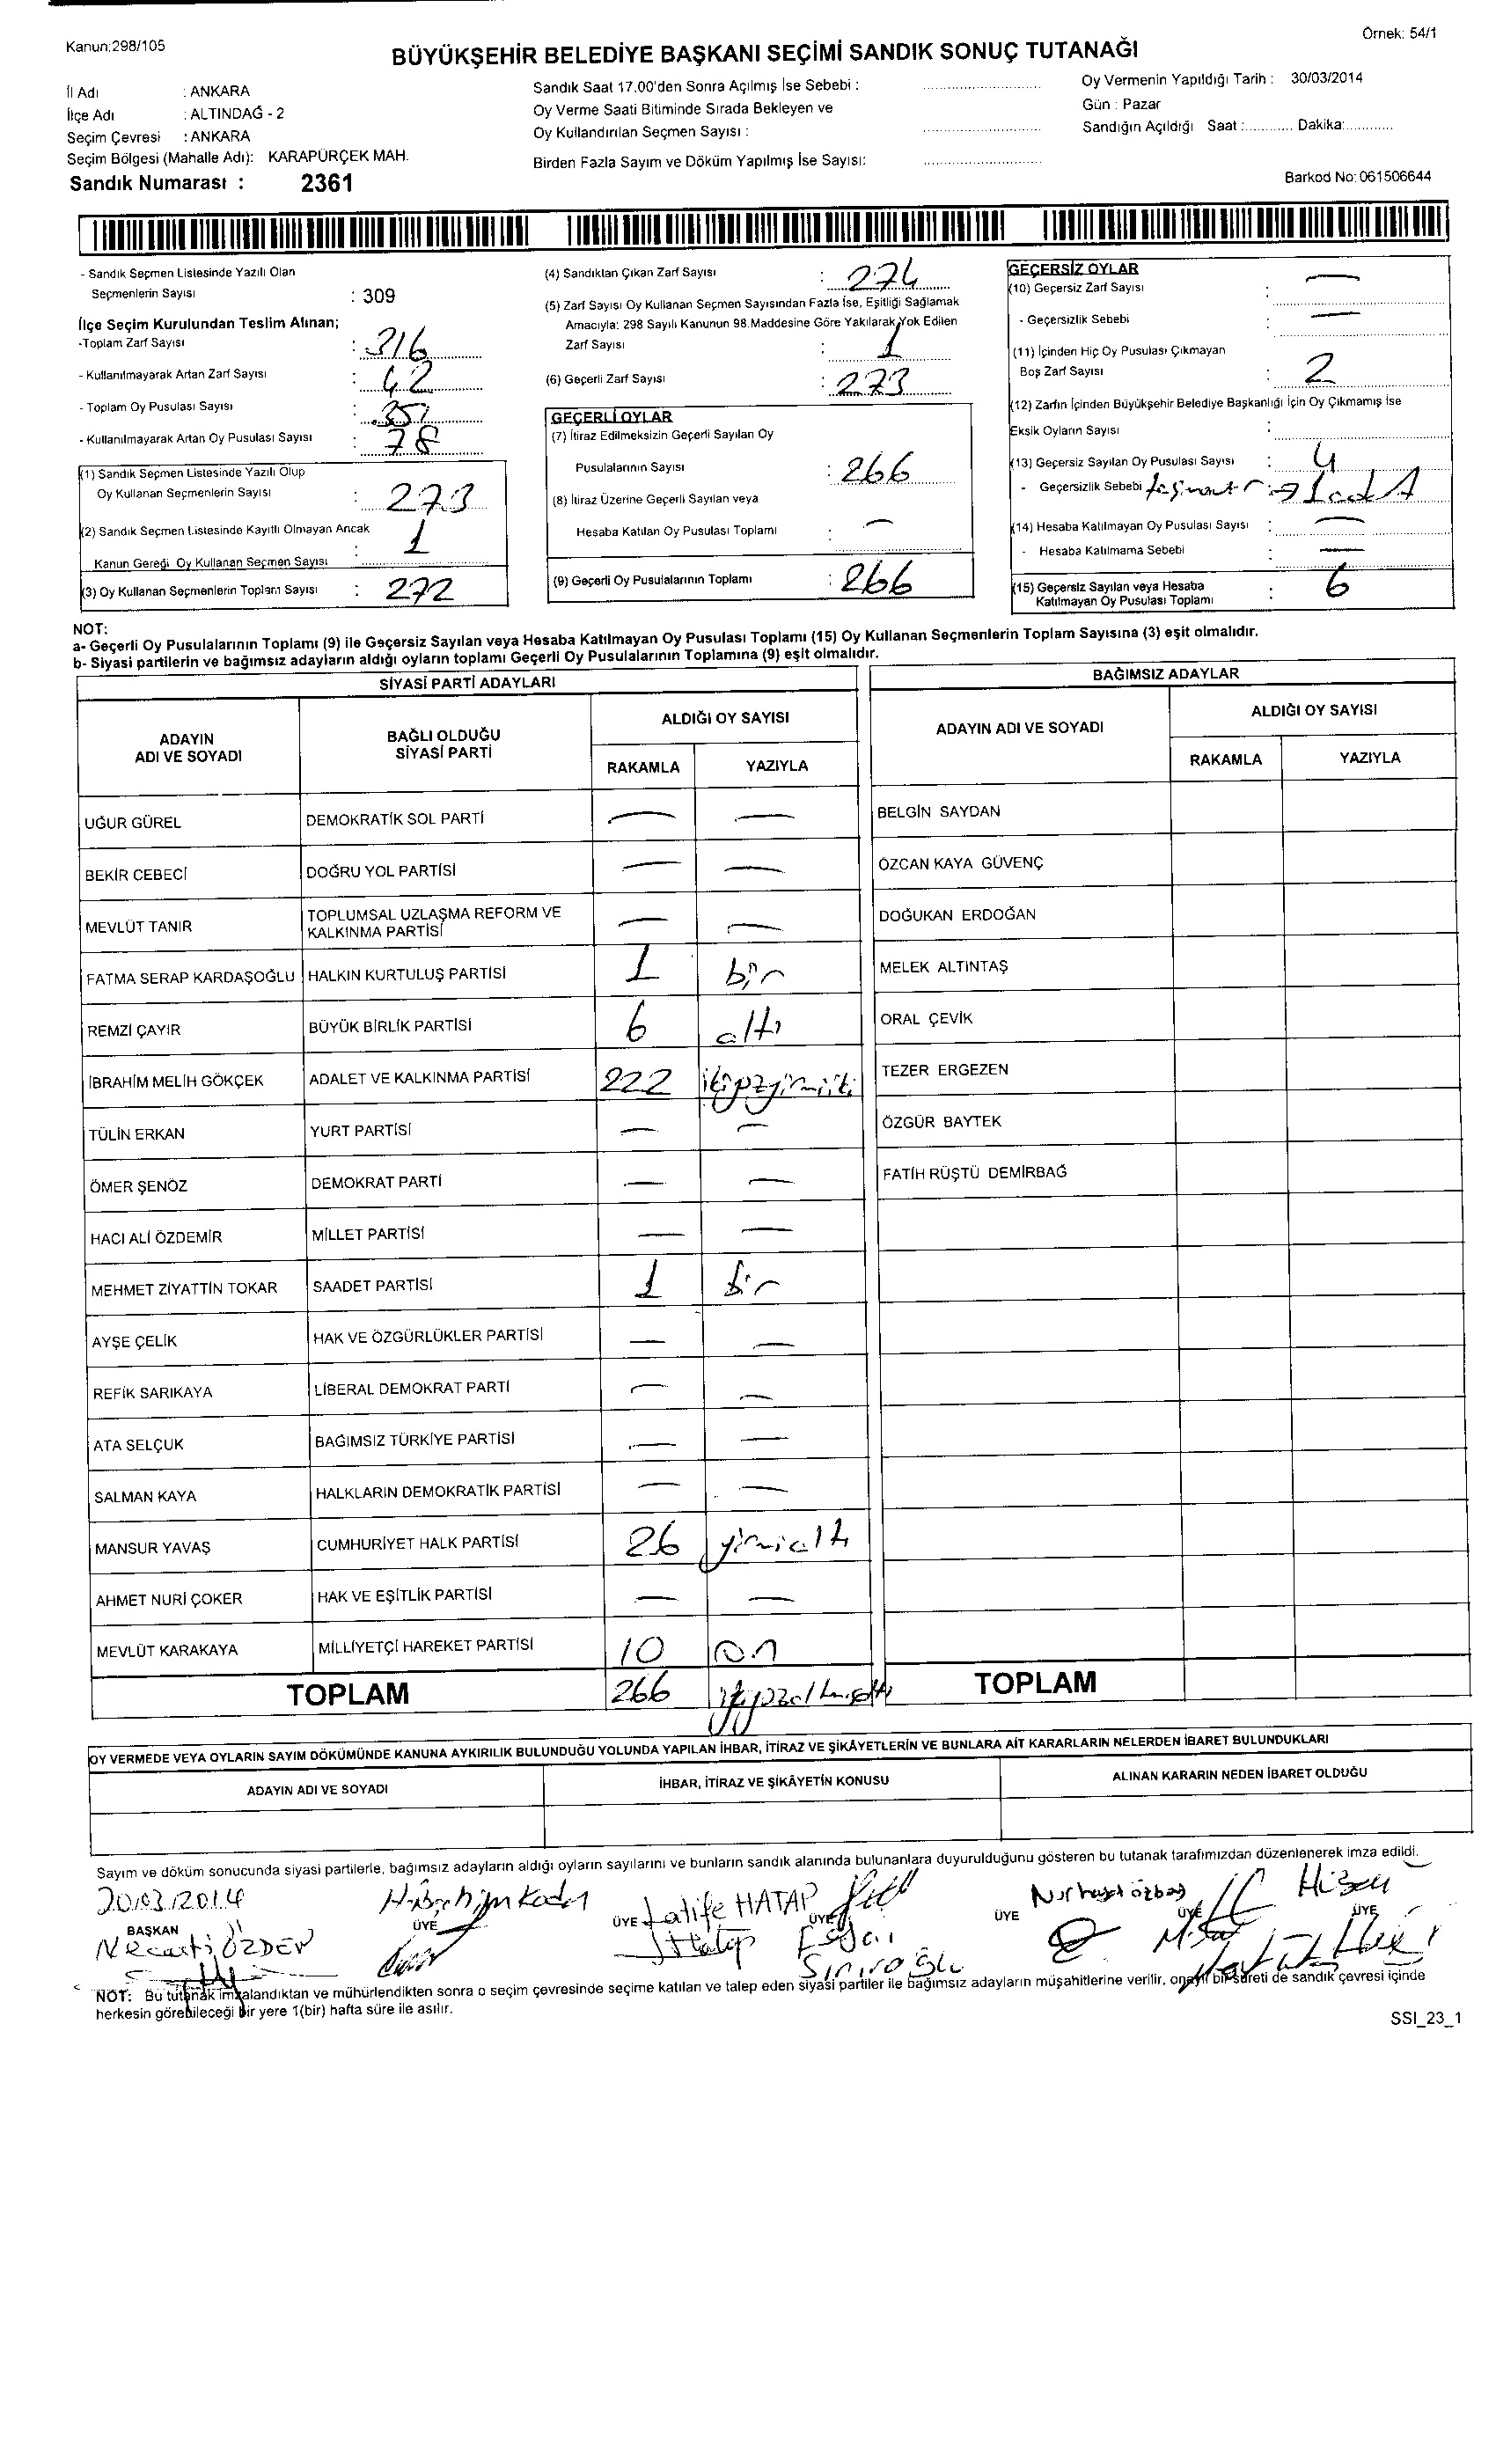 Kanun:298/105
Örnek: 54/1
BÜYÜKŞEHİR BELEDİYE BAŞKANI SEÇİMİ SANDIK SONUÇ TUTANAĞI
İl Adı : ANKARA
İlçe Adı : ALTINDAĞ - 2
Seçim Çevresi : ANKARA
Seçim Bölgesi (Mahalle Adı): KARAPÜRÇEK MAH.
Sandık Numarası : 2361
Sandık Saat 17.00'den Sonra Açılmış İse Sebebi :
Oy Verme Saati Bitiminde Sırada Bekleyen ve
Oy Kullandırılan Seçmen Sayısı :
Birden Fazla Sayım ve Döküm Yapılmış İse Sayısı:
Oy Vermenin Yapıldığı Tarih : 30/03/2014
Gün : Pazar
Sandığın Açıldığı Saat :............ Dakika:............
Barkod No: 061506644
- Sandık Seçmen Listesinde Yazılı Olan
Seçmenlerin Sayısı : 309
İlçe Seçim Kurulundan Teslim Alınan;
-Toplam Zarf Sayısı : 316
- Kullanılmayarak Artan Zarf Sayısı : 42
- Toplam Oy Pusulası Sayısı : 352
- Kullanılmayarak Artan Oy Pusulası Sayısı : 78
(1) Sandık Seçmen Listesinde Yazılı Olup
Oy Kullanan Seçmenlerin Sayısı : 273
(2) Sandık Seçmen Listesinde Kayıtlı Olmayan Ancak
Kanun Gereği Oy Kullanan Seçmen Sayısı : 1
(3) Oy Kullanan Seçmenlerin Toplam Sayısı : 272
(4) Sandıktan Çıkan Zarf Sayısı : 274
(5) Zarf Sayısı Oy Kullanan Seçmen Sayısından Fazla İse, Eşitliği Sağlamak
Amacıyla: 298 Sayılı Kanunun 98.Maddesine Göre Yakılarak Yok Edilen
Zarf Sayısı : 1
(6) Geçerli Zarf Sayısı : 273
GEÇERLİ OYLAR
(7) İtiraz Edilmeksizin Geçerli Sayılan Oy
Pusulalarının Sayısı : 266
(8) İtiraz Üzerine Geçerli Sayılan veya
Hesaba Katılan Oy Pusulası Toplamı : —
(9) Geçerli Oy Pusulalarının Toplamı : 266
GEÇERSİZ OYLAR
(10) Geçersiz Zarf Sayısı : —
- Geçersizlik Sebebi : —
(11) İçinden Hiç Oy Pusulası Çıkmayan
Boş Zarf Sayısı : 2
(12) Zarfın İçinden Büyükşehir Belediye Başkanlığı İçin Oy Çıkmamış İse
Eksik Oyların Sayısı :
(13) Geçersiz Sayılan Oy Pusulası Sayısı : 4
- Geçersizlik Sebebi
(14) Hesaba Katılmayan Oy Pusulası Sayısı : —
- Hesaba Katılmama Sebebi : —
(15) Geçersiz Sayılan veya Hesaba
Katılmayan Oy Pusulası Toplamı : 6
NOT:
a- Geçerli Oy Pusulalarının Toplamı (9) ile Geçersiz Sayılan veya Hesaba Katılmayan Oy Pusulası Toplamı (15) Oy Kullanan Seçmenlerin Toplam Sayısına (3) eşit olmalıdır.
b- Siyasi partilerin ve bağımsız adayların aldığı oyların toplamı Geçerli Oy Pusulalarının Toplamına (9) eşit olmalıdır.
SİYASİ PARTİ ADAYLARI
ADAYIN ADI VE SOYADI BAĞLI OLDUĞU SİYASİ PARTİ ALDIĞI OY SAYISI
RAKAMLA YAZIYLA
UĞUR GÜREL DEMOKRATİK SOL PARTİ — —
BEKİR CEBECİ DOĞRU YOL PARTİSİ — —
MEVLÜT TANIR TOPLUMSAL UZLAŞMA REFORM VE KALKINMA PARTİSİ — —
FATMA SERAP KARDAŞOĞLU HALKIN KURTULUŞ PARTİSİ 1 bir
REMZİ ÇAYIR BÜYÜK BİRLİK PARTİSİ 6 altı
İBRAHİM MELİH GÖKÇEK ADALET VE KALKINMA PARTİSİ 222 ikiyüzyirmiiki
TÜLİN ERKAN YURT PARTİSİ — —
ÖMER ŞENÖZ DEMOKRAT PARTİ — —
HACI ALİ ÖZDEMİR MİLLET PARTİSİ — —
MEHMET ZİYATTİN TOKAR SAADET PARTİSİ 1 bir
AYŞE ÇELİK HAK VE ÖZGÜRLÜKLER PARTİSİ — —
REFİK SARIKAYA LİBERAL DEMOKRAT PARTİ — —
ATA SELÇUK BAĞIMSIZ TÜRKİYE PARTİSİ — —
SALMAN KAYA HALKLARIN DEMOKRATİK PARTİSİ — —
MANSUR YAVAŞ CUMHURİYET HALK PARTİSİ 26 yirmialtı
AHMET NURİ ÇOKER HAK VE EŞİTLİK PARTİSİ — —
MEVLÜT KARAKAYA MİLLİYETÇİ HAREKET PARTİSİ 10 on
TOPLAM 266 ikiyüzaltmışaltı
BAĞIMSIZ ADAYLAR
ADAYIN ADI VE SOYADI ALDIĞI OY SAYISI
RAKAMLA YAZIYLA
BELGİN SAYDAN
ÖZCAN KAYA GÜVENÇ
DOĞUKAN ERDOĞAN
MELEK ALTINTAŞ
ORAL ÇEVİK
TEZER ERGEZEN
ÖZGÜR BAYTEK
FATİH RÜŞTÜ DEMİRBAĞ
TOPLAM
OY VERMEDE VEYA OYLARIN SAYIM DÖKÜMÜNDE KANUNA AYKIRILIK BULUNDUĞU YOLUNDA YAPILAN İHBAR, İTİRAZ VE ŞİKÂYETLERİN VE BUNLARA AİT KARARLARIN NELERDEN İBARET BULUNDUKLARI
ADAYIN ADI VE SOYADI İHBAR, İTİRAZ VE ŞİKÂYETİN KONUSU ALINAN KARARIN NEDEN İBARET OLDUĞU
Sayım ve döküm sonucunda siyasi partilerle, bağımsız adayların aldığı oyların sayılarını ve bunların sandık alanında bulunanlara duyurulduğunu gösteren bu tutanak tarafımızdan düzenlenerek imza edildi.
BAŞKAN ÜYE ÜYE ÜYE ÜYE ÜYE ÜYE
Necati ÖZDEN
Latife HATAP
NOT: Bu tutanak imzalandıktan ve mühürlendikten sonra o seçim çevresinde seçime katılan ve talep eden siyasi partiler ile bağımsız adayların müşahitlerine verilir, onaylı bir sureti de sandık çevresi içinde
herkesin görebileceği bir yere 1(bir) hafta süre ile asılır.
SSI_23_1